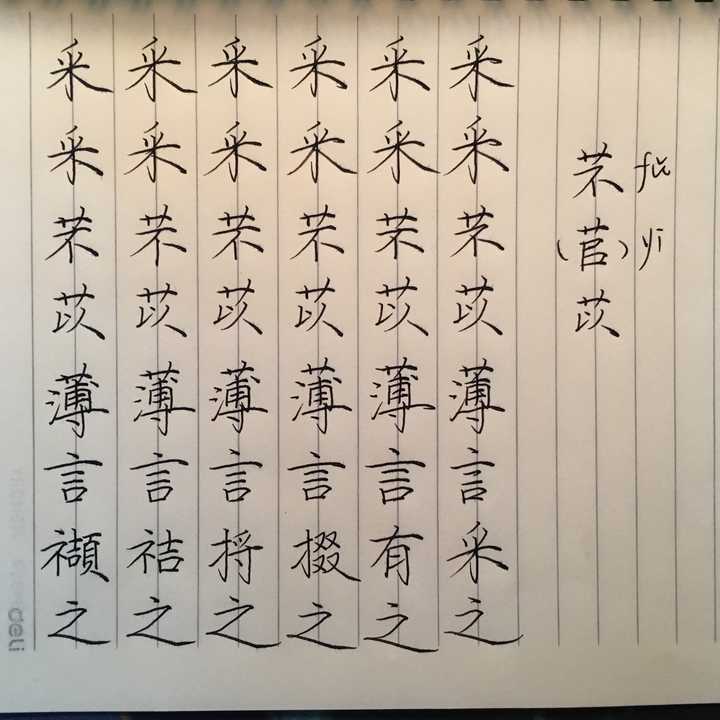 fú yǐ
芣(苢)苡
采采芣苡薄言采之
采采芣苡薄言有之
采采芣苡薄言掇之
采采芣苡薄言捋之
采采芣苡薄言袺之
采采芣苡薄言襭之
deli